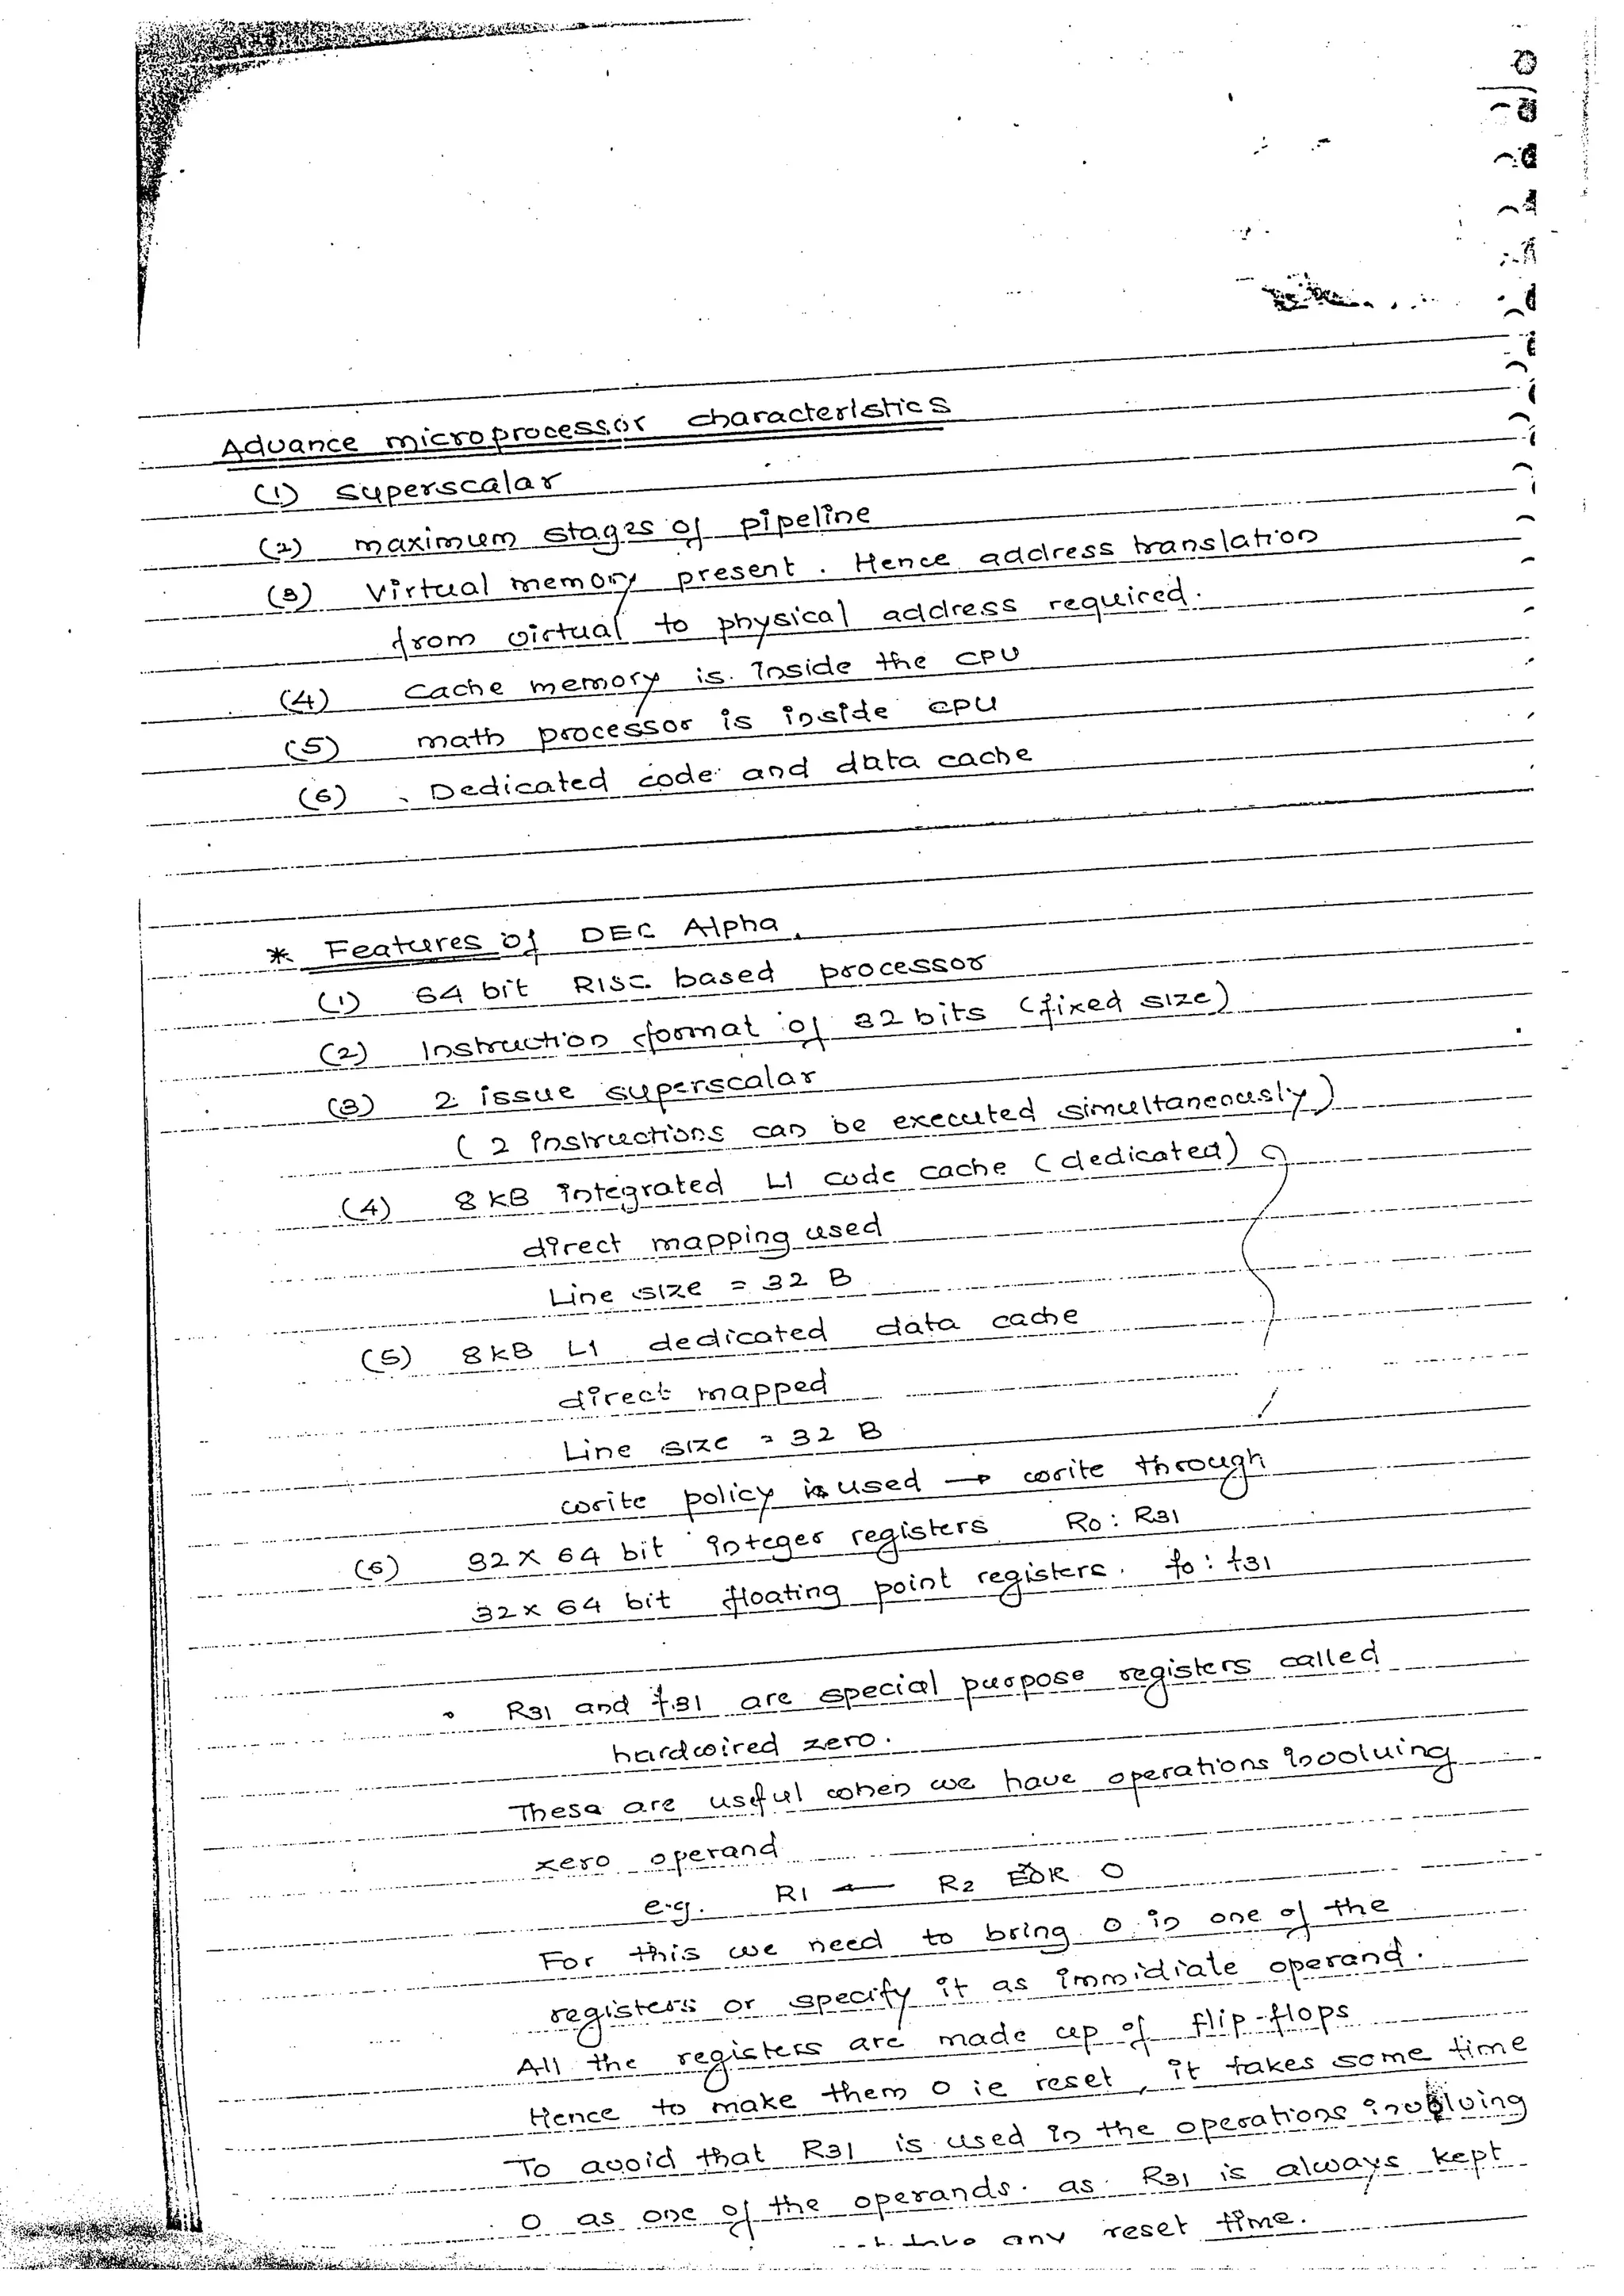 Advance microprocessor characteristics
(1) superscalar
(2) maximum stages of pipeline
(3) Virtual memory present. Hence address translation
from virtual to physical address required.
(4) Cache memory is inside the CPU
(5) math processor is inside CPU
(6) Dedicated code and data cache
* Features of DEC Alpha
(1) 64 bit RISC based processor
(2) Instruction format of 32 bits (fixed size)
(3) 2 issue superscalar
(2 instructions can be executed simultaneously)
(4) 8 KB integrated L1 code cache (dedicated)
direct mapping used
Line size = 32 B
(5) 8KB L1 dedicated data cache
direct mapped
Line size = 32 B
write policy is used → write through
(6) 32 x 64 bit integer registers R0 : R31
32 x 64 bit floating point registers. f0 : f31
• R31 and f31 are special purpose registers called
hardwired zero.
These are useful when we have operations involving
zero operand
e.g. R1 ← R2 EXOR 0
For this we need to bring 0 in one of the
registers or specify it as immidiate operand.
All the registers are made up of flip-flops
Hence to make them 0 ie reset, it takes some time
To avoid that R31 is used in the operations involving
0 as one of the operands. as R31 is always kept
any reset time.